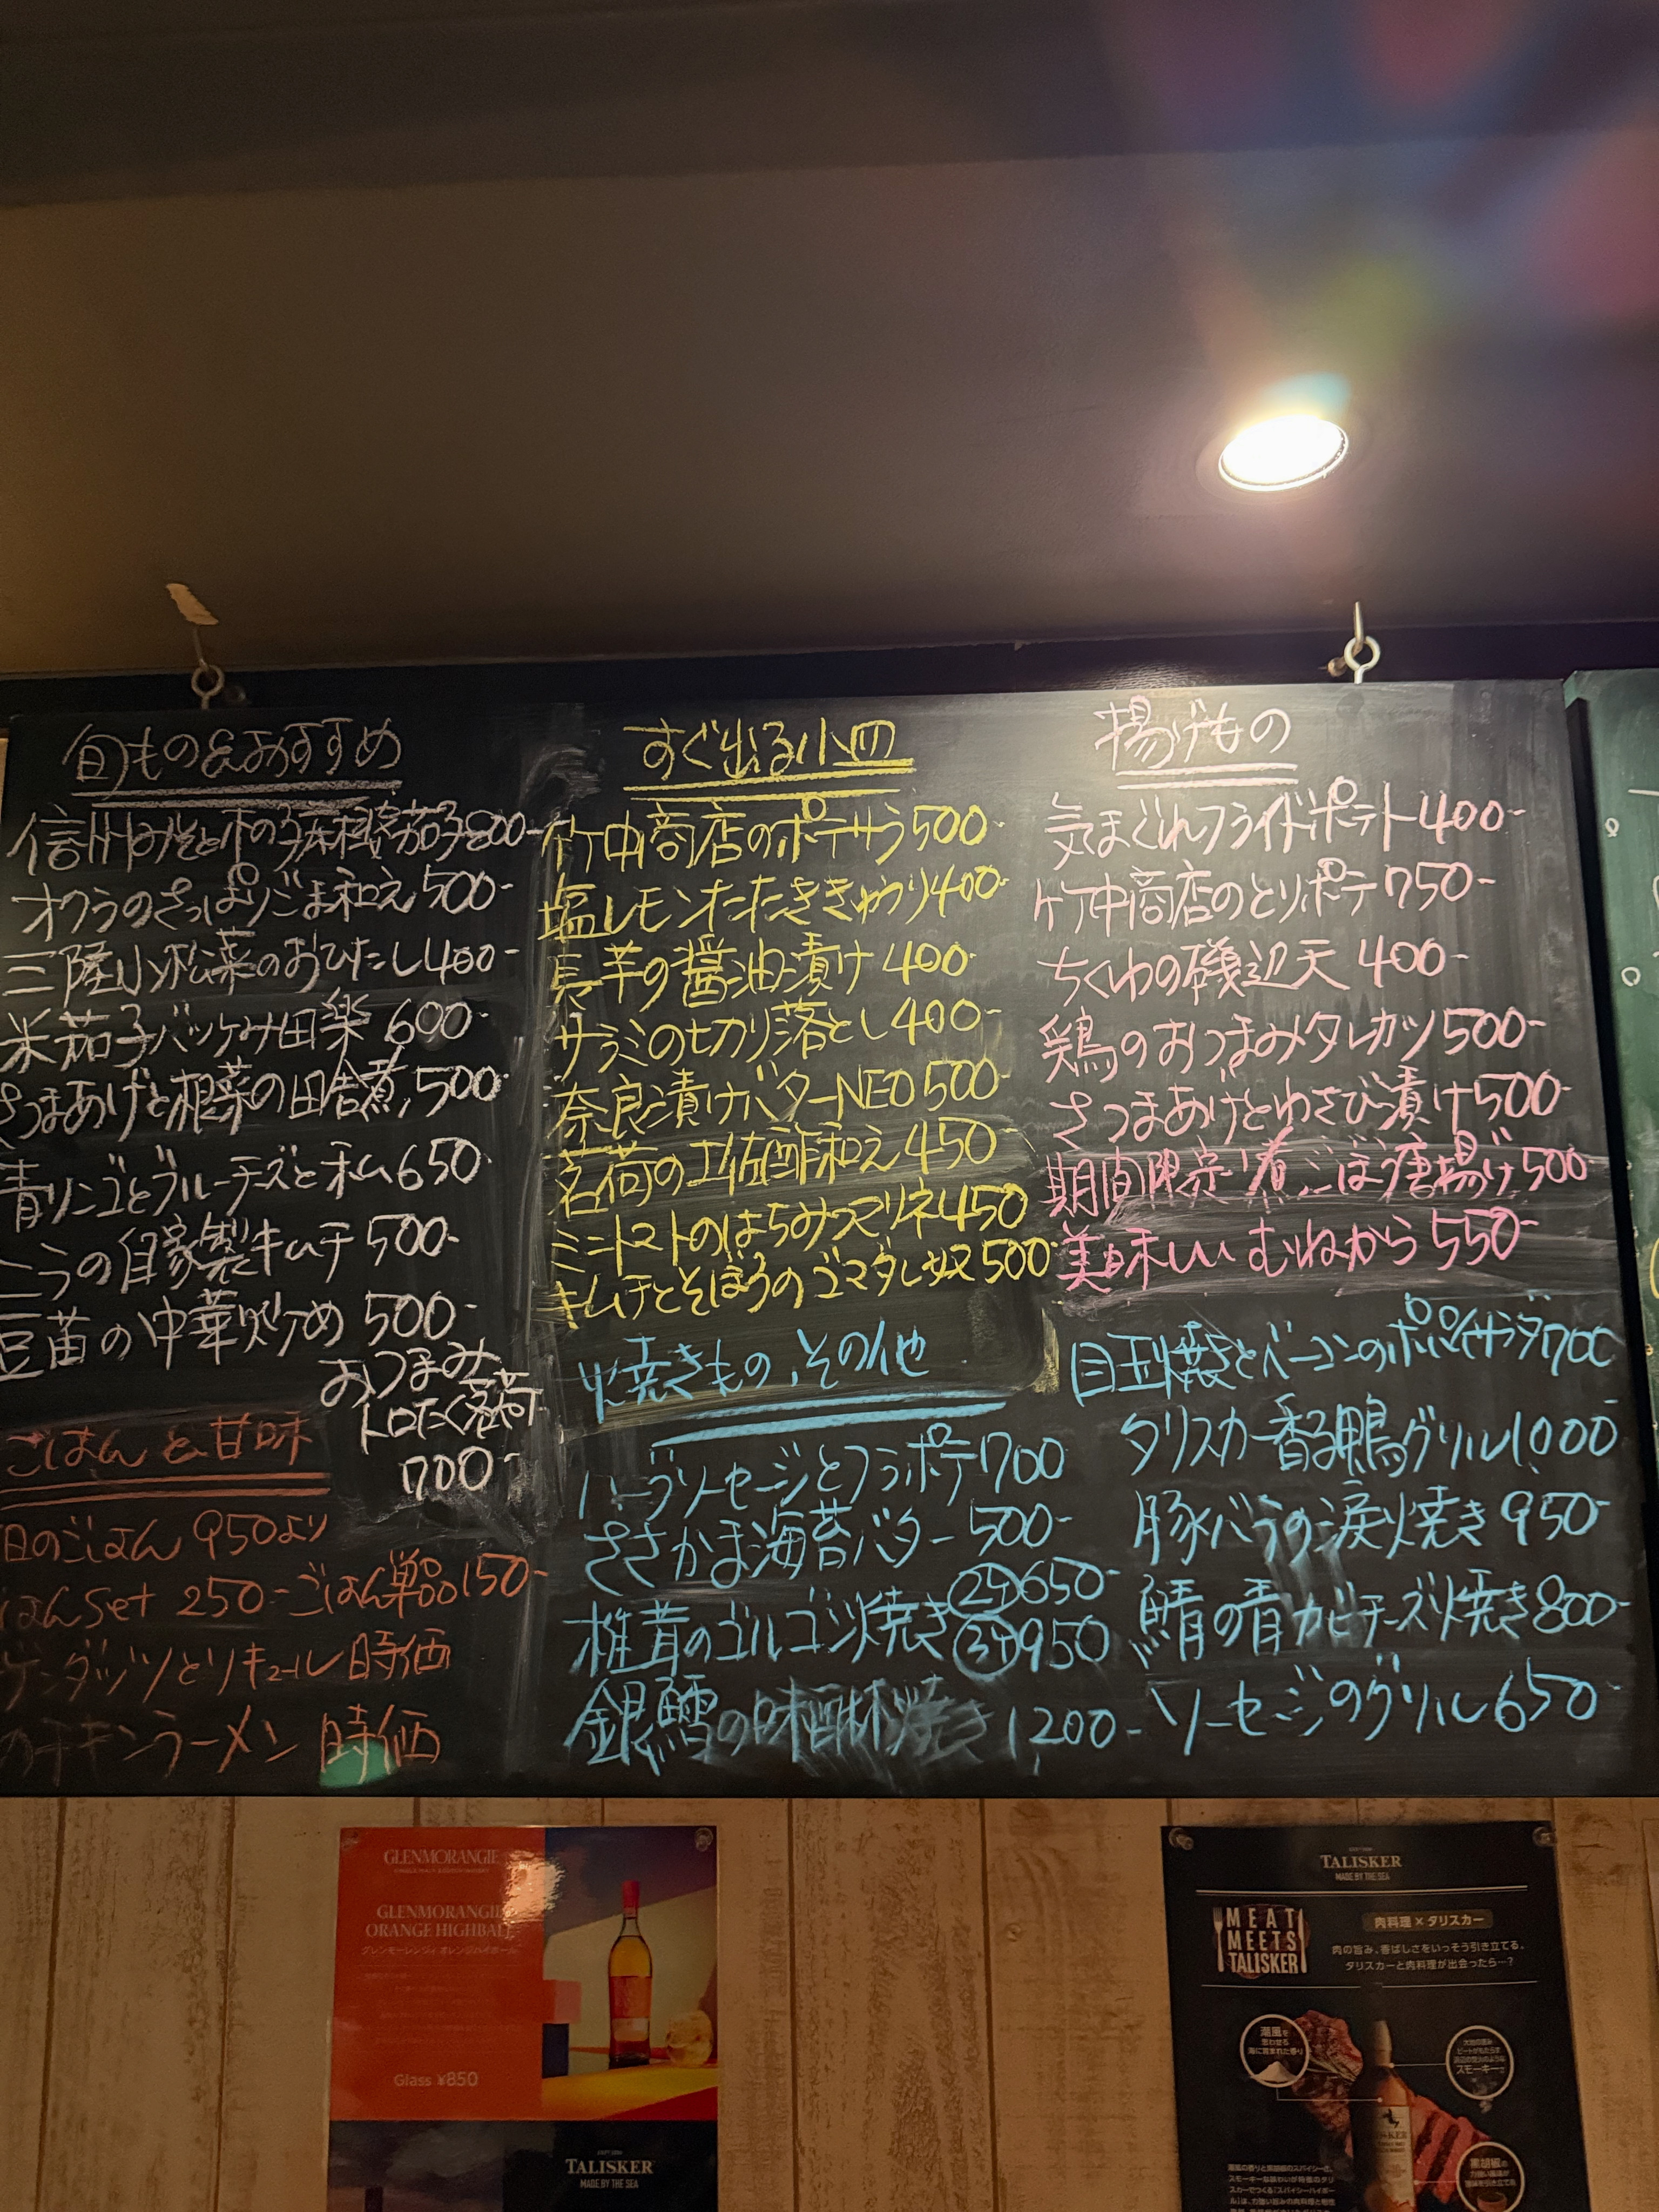 旬もの&おすすめ
オクラのさっぱりごま和え 500-
三陸小松菜のおひたし 400-
米茄子バッケみ田楽 600-
さつまあげと根菜の田舎煮 500-
青リンゴとブルーチーズと私ム 650-
こうの自家製キムチ 500-
豆苗の中華炒め 500-
おつまみ
トロたく茗荷
700-
ごはんと甘味
日のごはん 950より
はんset 250- ごはん単品 150-
ゲンダッツとリキュール 時価
カチキンラーメン 時価
すぐ出る小皿
竹中商店のポテサラ 500-
塩レモンたたききゅうり 400-
長芋の醤油漬け 400-
サラミの切り落とし 400-
奈良漬けバターNEO 500-
茗荷の土佐酢和え 450-
ミニトマトのはちみつマリネ 450
キムチとそぼろのゴマダレ奴 500-
焼きもの、その他
ハーブソーセージとフラポテ 700
ささかま海苔バター 500-
椎茸のゴルゴンゾ焼き ②ケ 650-
③ケ 950
銀鱈の味醂焼き 1200-
揚げもの
気まぐれフライドポテト 400-
竹中商店のとりポテ 750-
ちくわの磯辺天 400-
鶏のおつまみタレカツ 500-
さつまあげとわさび漬け 500-
期間限定!煮ごぼう唐揚げ 500-
美味しい むねから 550-
目玉焼きとベーコンのポパイサラダ 700
タリスカー香る鴨グリル 1000-
豚バラの涙焼き 950-
鯖の青カビチーズ焼き 800-
ソーセージのグリル 650
GLENMORANGIE
GLENMORANGIE
ORANGE HIGHBALL
グレンモーレンジィ オレンジハイボール
Glass ¥850
TALISKER
MADE BY THE SEA
TALISKER
MADE BY THE SEA
MEAT
MEETS
TALISKER
肉料理×タリスカー
肉の旨み、香ばしさをいっそう引き立てる。
タリスカーと肉料理が出会ったら…?
潮風を
思わせる
海に育まれた香り
スモーキーさ
黒胡椒の